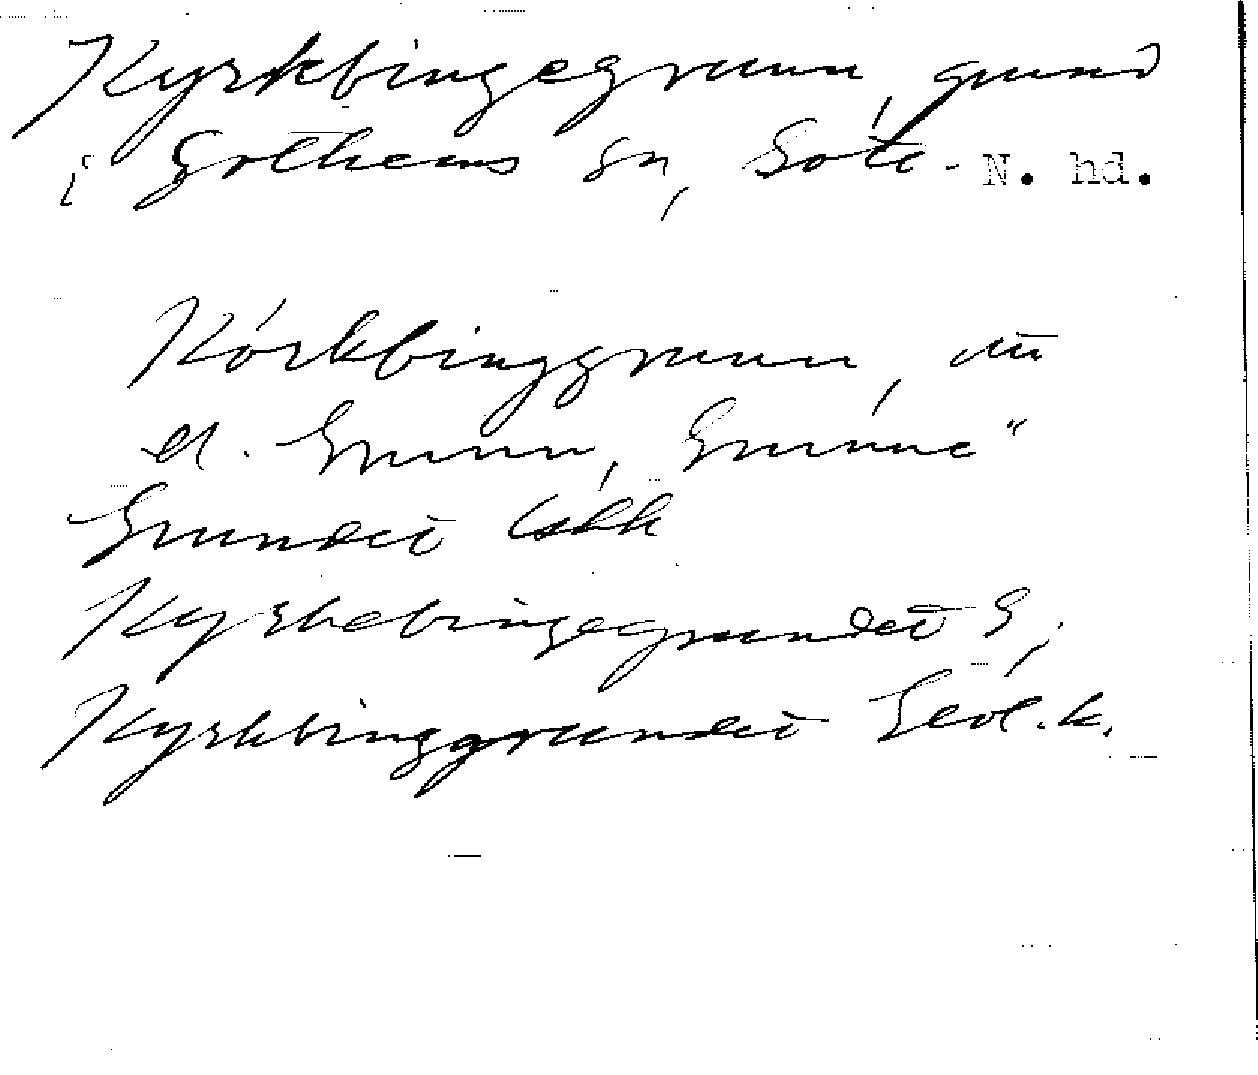 Kyrkbingegrunn, grund
i Gothems sn, Gotl. N. hd.
Körkbinggrunn,
el. Grunn, Grunne"
Grundet
Kyrkebingegrundet G,
Kyrkbinggrundet Geol.k.